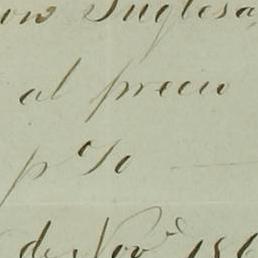 Inglesa
al precio
p %
de Nov.e 186